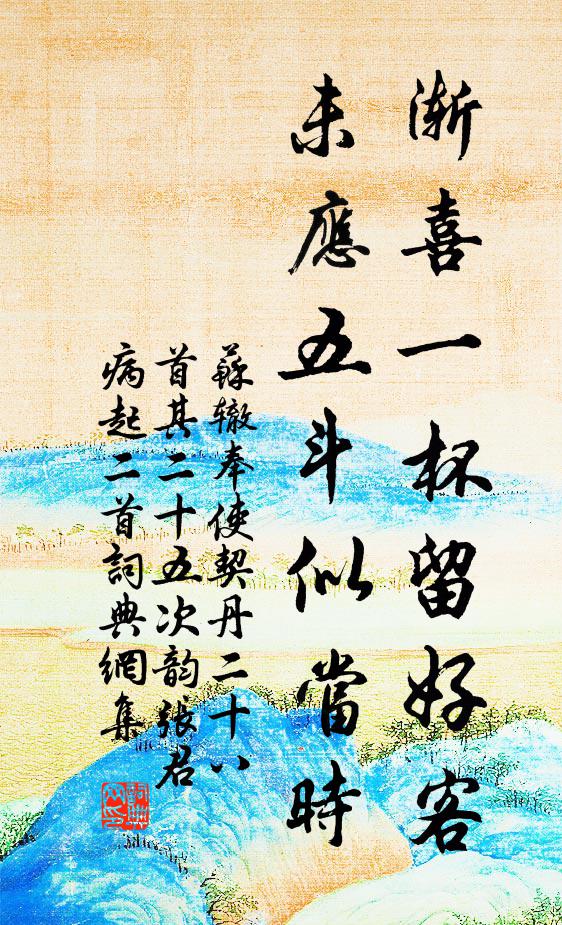 漸喜一杯留好客
未應五斗似當時
蘇辙奉使契丹二十八
首其二十五次韵張君
病起二首詞典網集